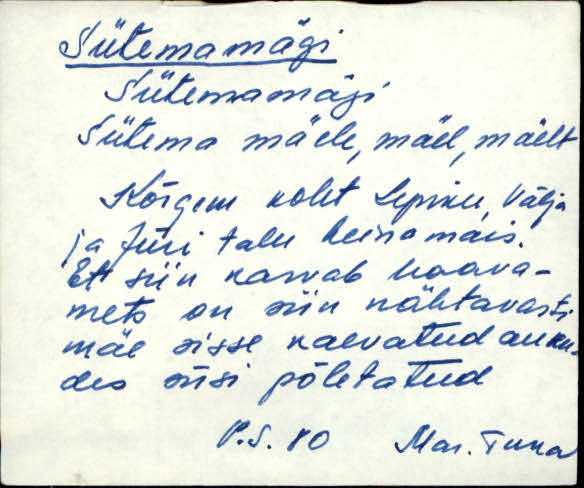 Sütemamägi
Sütemamägi
Sütema mäele, mäel, mäelt
Kõrgem koht Lepiku, Välja
ja Jüri talu heinamais.
Et siin kasvab haava-
mets on siin nähtavasti
mäe sisse kaevatud auku-
des süsi põletatud
P.S. 80 Mar. Tuna